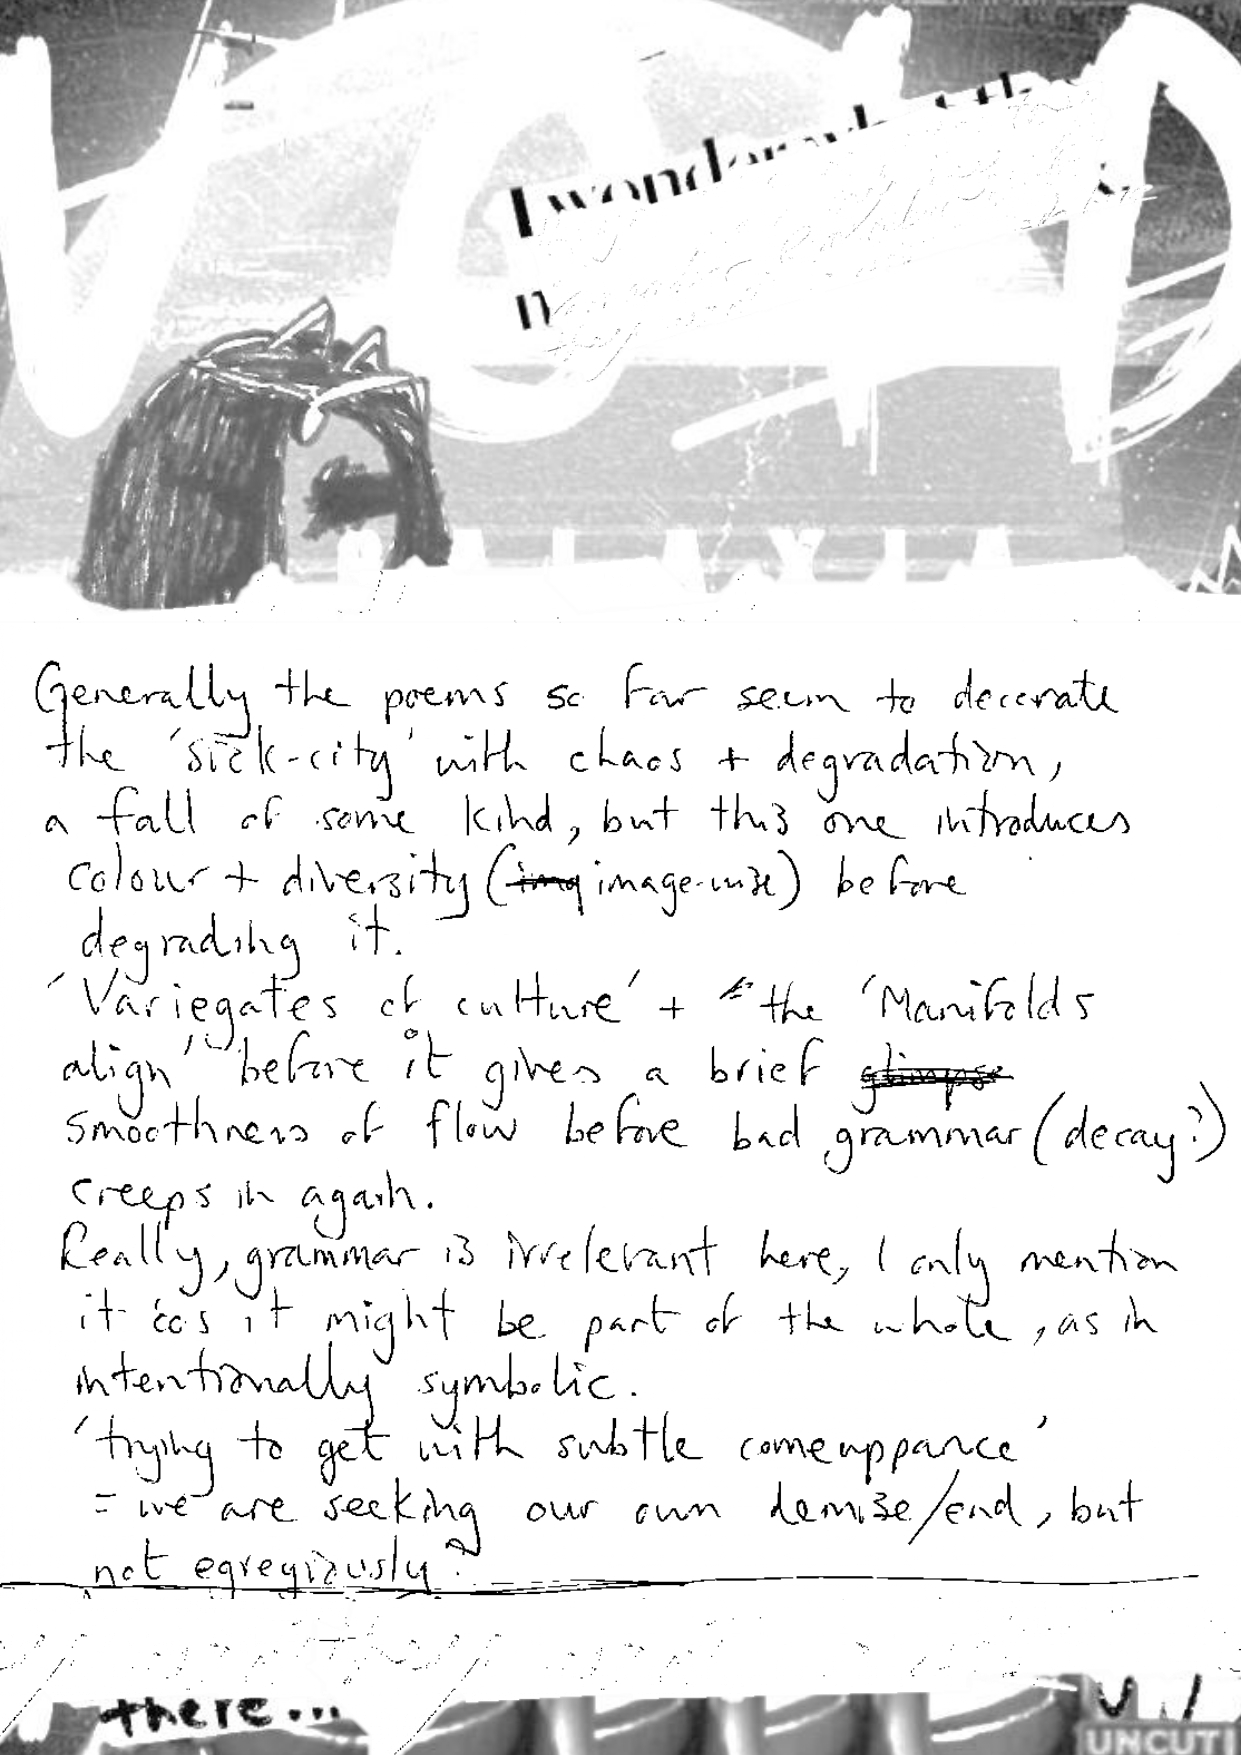 VOID
I wonder what the
n
GALAXIA
Generally the poems so far seem to decorate
the 'sick-city' with chaos + degradation,
a fall of some kind, but this one introduces
colour + diversity (img image-wise) before
degrading it.
'Variegates of culture' + the 'Manifolds
align' before it gives a brief glimpse
smoothness of flow before bad grammar (decay?)
creeps in again.
Really, grammar is irrelevant here, I only mention
it 'cos it might be part of the whole, as in
intentionally symbolic.
'trying to get with subtle comeuppance'
= we are seeking our own demise/end, but
not egregiously?
there...
UNCUT!